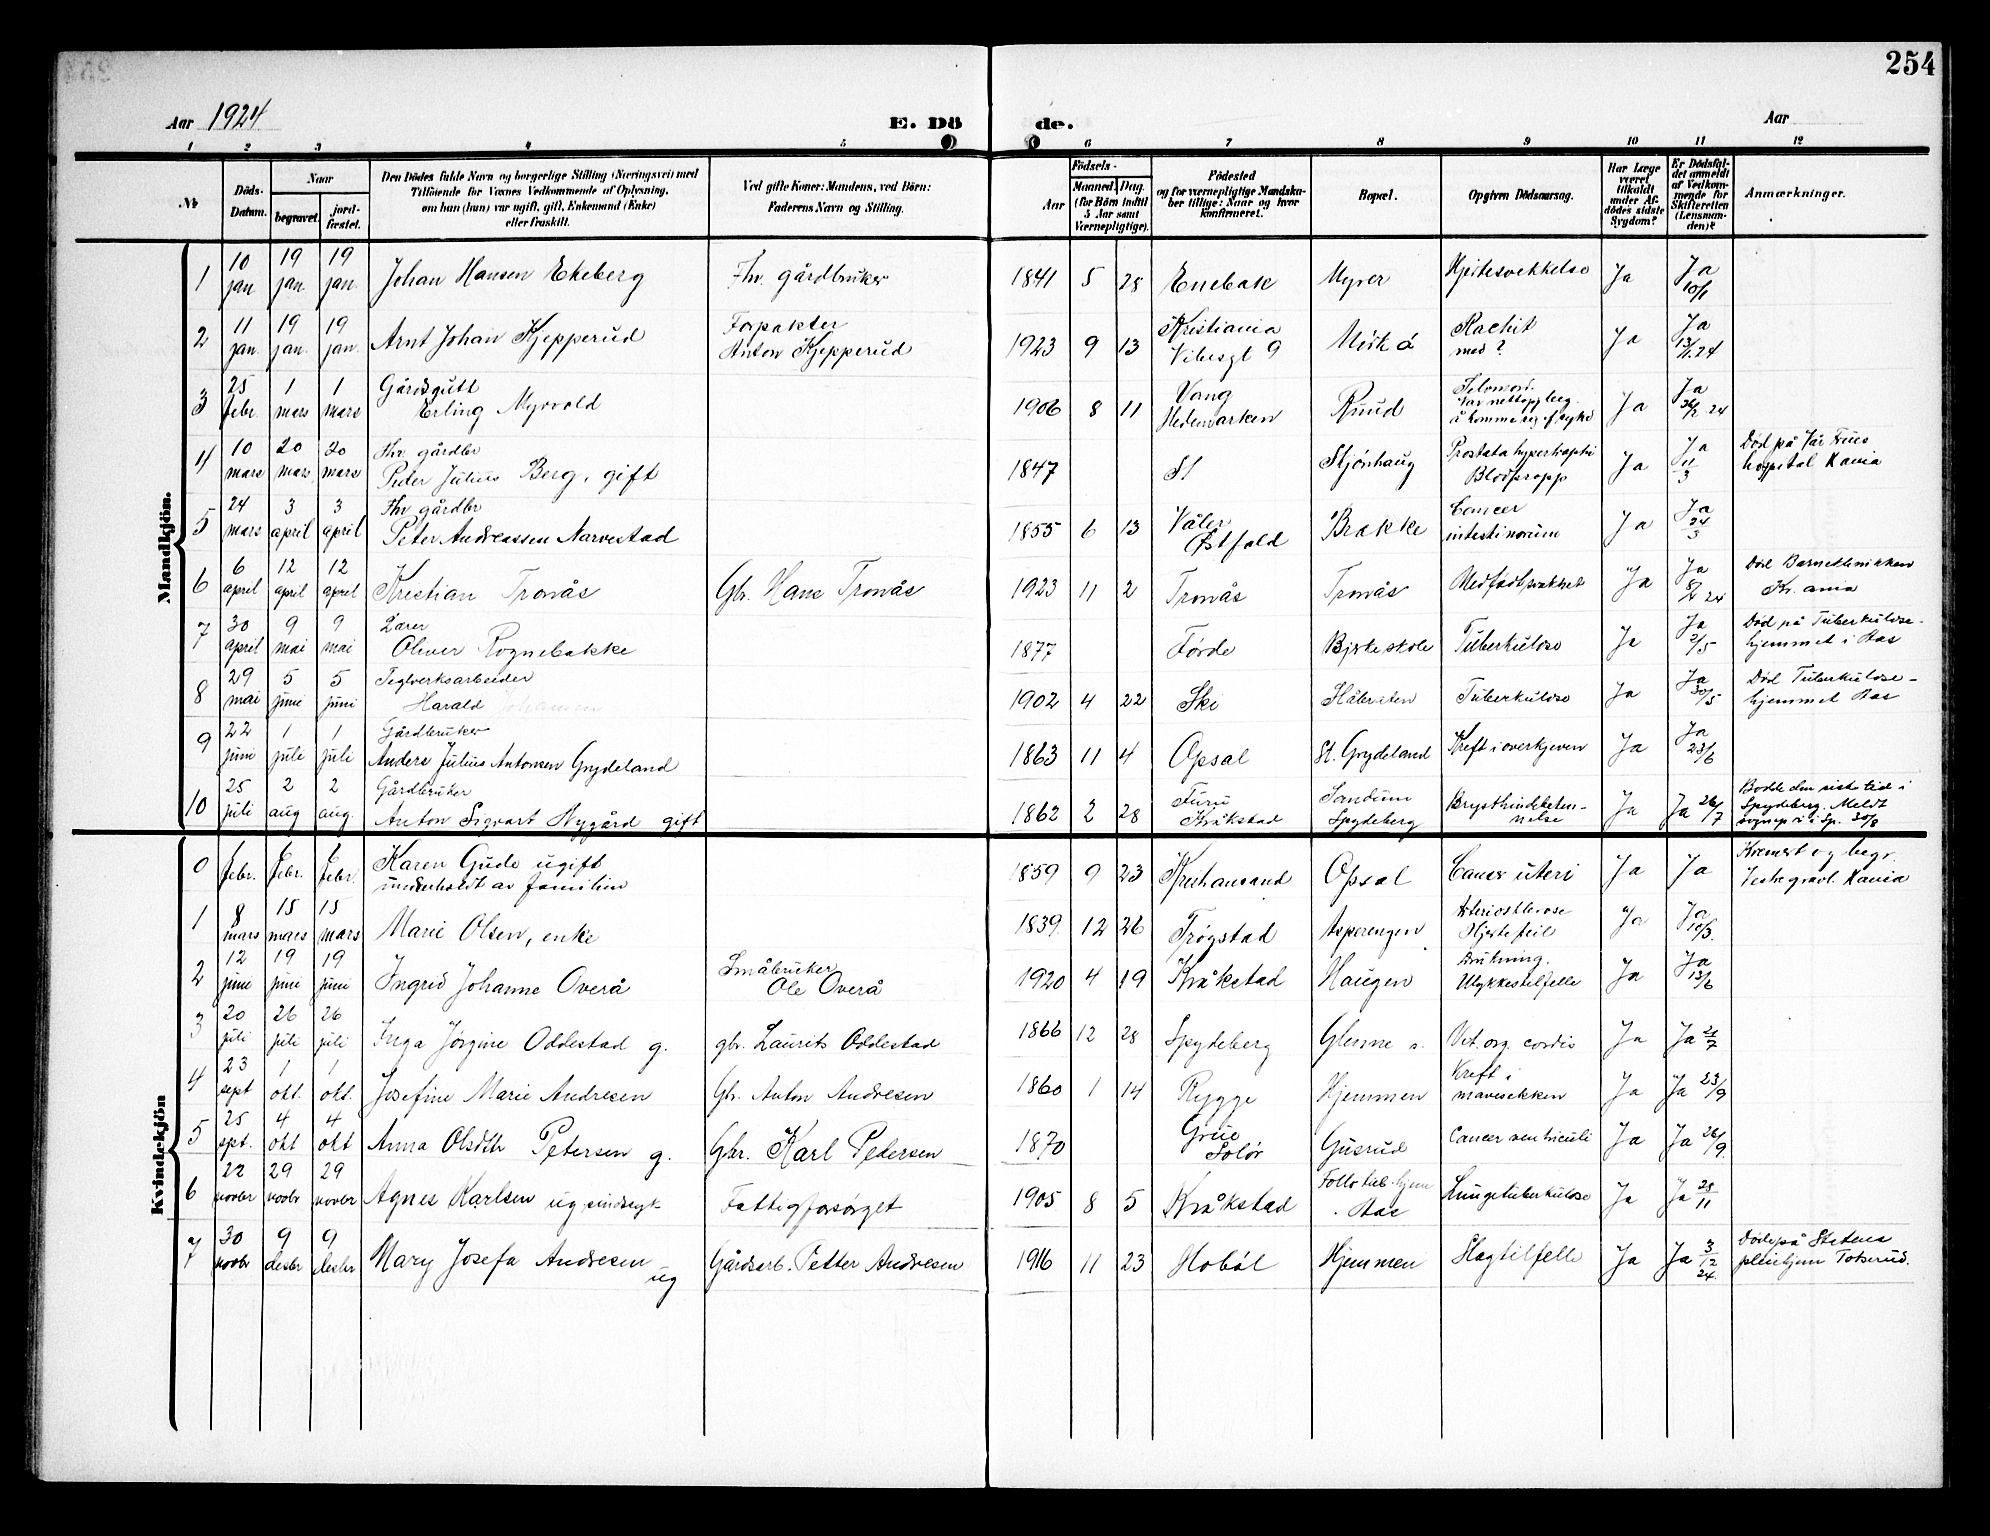 254
Aar 1924
E. Dö de.
Aar
1 2 3 4 5 6 7 8 9 10 11 12
No
Döds-Datum.
Naar
begravet.
jord-fæstet.
Den Dödes fulde Navn og borgerlige Stilling (Næringsvei) med
Tilföiende for Voxnes Vedkommende af Oplysning,
om han (hun) var ugift, gift, Enkemand (Enke)
eller fraskilt.
Ved gifte Koner: Mandens, ved Börn:
Faderens Navn og Stilling.
Födsels-
Aar
Maaned. Dag.
(for Börn indtil
5 Aar samt
Værnepligtige).
Födested
og for værnepligtige Mandska-
ber tillige: Naar og hvor
konfirmeret.
Bopæl.
Opgiven Dödsaarsag.
Har Læge
været
tilkaldt
under Af-
dödes sidste
Sygdom?
Er Dödsfal-
det anmeldt
af Vedkom-
mende for
Skifteretten
(Lensman-
den)?
Anmærkninger.
Mandkjön.
1 10 jan 19 jan. 19 jan. Johan Hansen Ekeberg Fhv. gårdbruker 1841 5 28 Enebak Myrer Hjertesvekkelse Ja Ja 10/1
2 11 jan. 19 jan. 19 jan. Arnt Johan Kjepperud Forpakter Anton Kjepperud 1923 9 13 Kristiania Vibesgt 9 Rachit med? Ja Ja 13/1 24
3 25 febr. 1 mars 1 mars Gårdsgutt Erling Myrvold 1906 8 11 Vang Hedemarken Ruud Selvmord. Ja Ja 26/2 24
4 10 mars 20 mars 20 mars Fhv gårdbr Peder Julius Berg, gift 1847 Sl Stjørnhaug Prostatahypertrophi Blodpropp Ja Ja 11/3 Død på Vår Frues hospital Kania
5 24 mars 3 april 3 april Fhv gårdbr Peter Andreassen Narvestad 1855 6 13 Våler Østfold Brakke Cancer intestinorum Ja Ja 24/3
6 6 april 12 april 12 april Kristian Tronås Gbr. Hans Tronås 1923 11 2 Tronås Tronås Medfødt svakhet Ja Ja 8/4 24 Død Barneklinikken Kr.ania
7 30 april 9 mai 9 mai Lærer Oliver Rognebakke 1877 Førde Bjerkeskole Tuberkulose Ja Ja 2/5 Død på Tuberkulose-hjemmet i Aas
8 29 mai 5 juni 5 juni Teglverksarbeider Harald Johansen 1902 4 22 Ski Tuberkulose Ja Ja 30/5 Død Tuberkulose-hjemmet Aas
9 22 juni 1 juli 1 juli Gårdbruker Anders Julius Antonsen Grydeland 1863 11 4 Opsal St. Grydeland Kreft i overkjeven Ja Ja 23/6
10 25 juli 2 aug 2 aug. Gårdbruker Anton Sigvart Nygård gift 1862 2 28 Furu Kråkstad Sandum Spydeberg Brysthindebeten-nelse Ja Ja 26/7 Bodde den siste tid i Spydeberg. Meldt sognepr. i Sp. 30/8
Kvindekjön
0 febr. febr. febr. Karen Gude ugift underholdt av familien 1859 9 23 Kristiansand Opsal Cancer uteri Ja Ja Kremert og begr. Vestre gravl. Kania
1 8 mars 15 mars 15 mars Marie Olsen, enke 1839 12 26 Trøgstad Asperengen Arteriosklerose Hjertefeil Ja Ja 10/3.
2 12 juni 19 juni 19 juni Ingrid Johanne Overå Småbruker Ole Overå 1920 4 19 Kråkstad Haugen Drukning. Ulykkestilfelle Ja Ja 13/6
3 20 juli 26 juli 26 juli Inga Jørgine Oddestad g. gbr. Laurits Oddestad 1866 12 28 Spydeberg Glenne Vit. org. cordis Ja Ja 21/7
4 23 sept 1 okt. 1 okt. Josefine Marie Andresen Gbr. Anton Andresen 1860 1 14 Rygge Hjemmen Kreft i mavesekken Ja Ja 23/9
5 25 spt. 4 okt 4 okt Anna Olsdtr Petersen g. Gbr. Karl Pedersen 1870 Grue Solør Gusrud Cancer ventriculi Ja Ja 26/9
6 22 novbr 29 novbr 29 novbr Agnes Karlsen ug. sindssyk Fattigforsørget 1905 8 5 Kråkstad Follo tub.hjem Aas Lungetuberkulose Ja Ja 28/11
7 30 novbr 9 desbr 9 desbr Mary Josefa Andresen ug Gårdsarb. Petter Andresen 1916 11 23 Hobøl Hjemmen Slagtilfelle Ja Ja 3/12 24. Døde på Statens pleiehjem Tokerud.